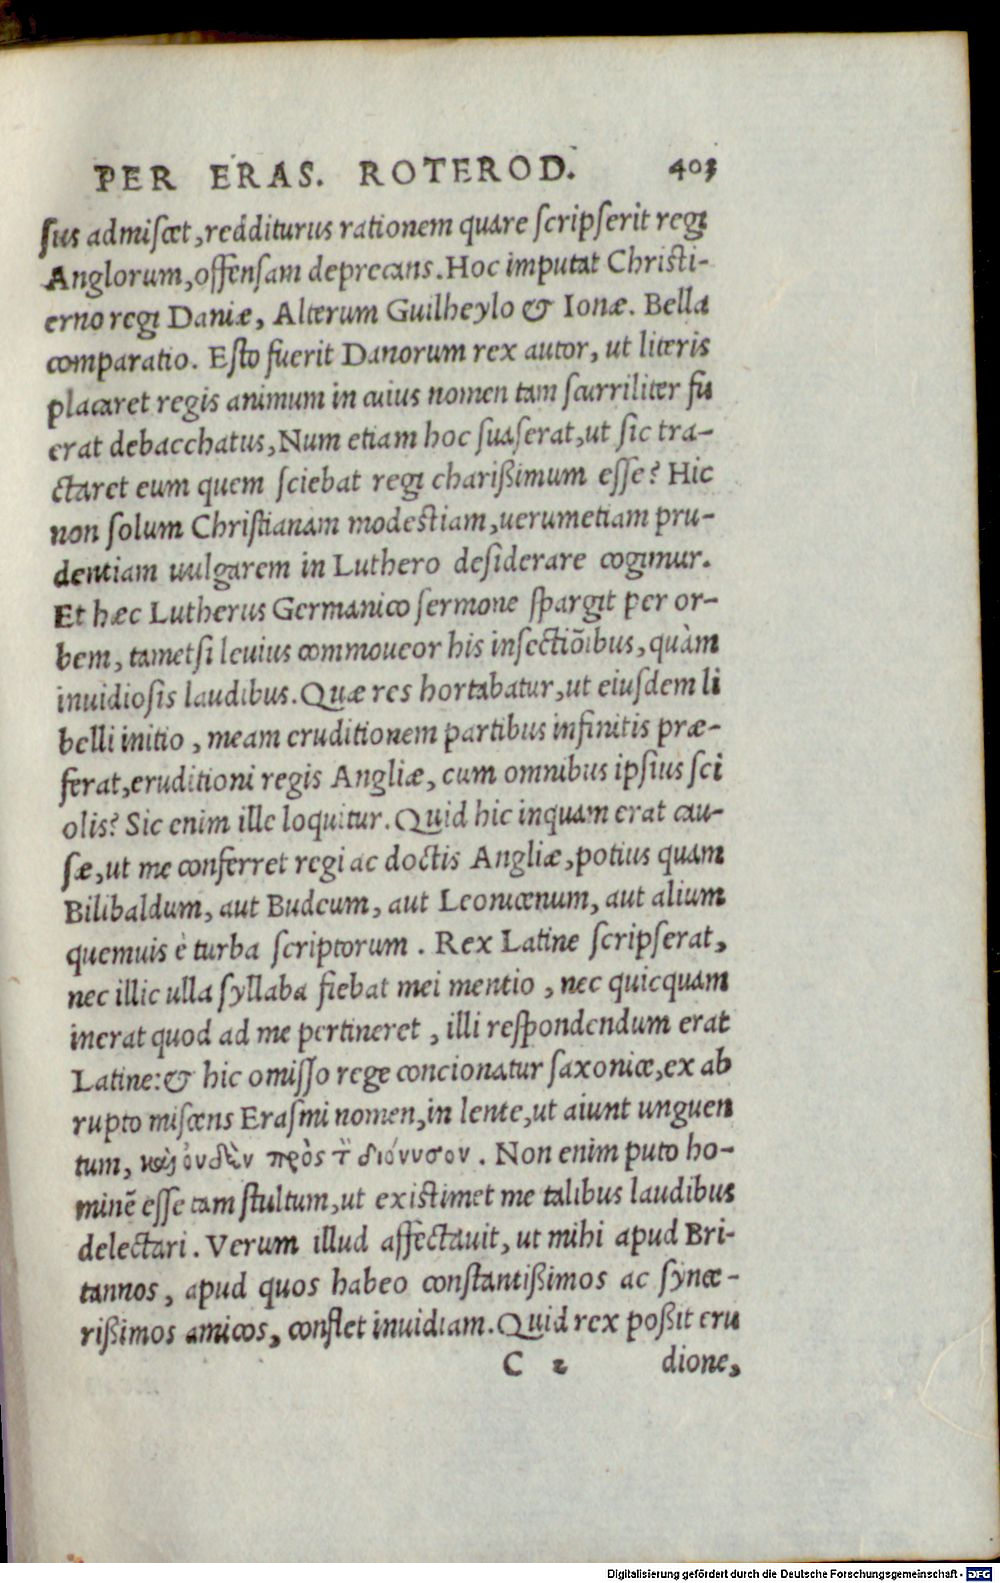 PER ERAS. ROTEROD. 403
ſus admiſcet, redditurus rationem quare ſcripſerit regi
Anglorum, offenſam deprecans. Hoc imputat Chriſti-
erno regi Daniæ, Alterum Guilheylo & Ionæ. Bella
comparatio. Eſto fuerit Danorum rex autor, ut literis
placaret regis animum in cuius nomen tam ſcurriliter fu
erat debacchatus, Num etiam hoc ſuaſerat, ut ſic tra-
ctaret eum quem ſciebat regi charißimum eſſe? Hic
non ſolum Chriſtianam modeſtiam, uerumetiam pru-
dentiam uulgarem in Luthero deſiderare cogimur.
Et hæc Lutherus Germanico ſermone ſpargit per or-
bem, tametſi leuius commoueor his inſectiõibus, quàm
inuidioſis laudibus. Quæ res hortabatur, ut eiuſdem li
belli initio, meam eruditionem partibus infinitis præ-
ferat, eruditioni regis Angliæ, cum omnibus ipſius ſci
olis? Sic enim ille loquitur. Quid hic inquam erat cau-
ſæ, ut me conferret regi ac doctis Angliæ, potius quam
Bilibaldum, aut Budeum, aut Leonicenum, aut alium
quemuis è turba ſcriptorum. Rex Latine ſcripſerat,
nec illic ulla ſyllaba fiebat mei mentio, nec quicquam
inerat quod ad me pertineret, illi reſpondendum erat
Latine: & hic omiſſo rege concionatur ſaxonice, ex ab
rupto miſcens Eraſmi nomen, in lente, ut aiunt unguen
tum, καὶ ὀυδὲν πρὸς τ̀ διόνυσον. Non enim puto ho-
minẽ eſſe tam ſtultum, ut exiſtimet me talibus laudibus
delectari. Verum illud affectauit, ut mihi apud Bri-
tannos, apud quos habeo conſtantißimos ac ſynce-
rißimos amicos, conflet inuidiam. Quid rex poßit eru
C 2 dione,
Digitalisierung gefördert durch die Deutsche Forschungsgemeinschaft - DFG